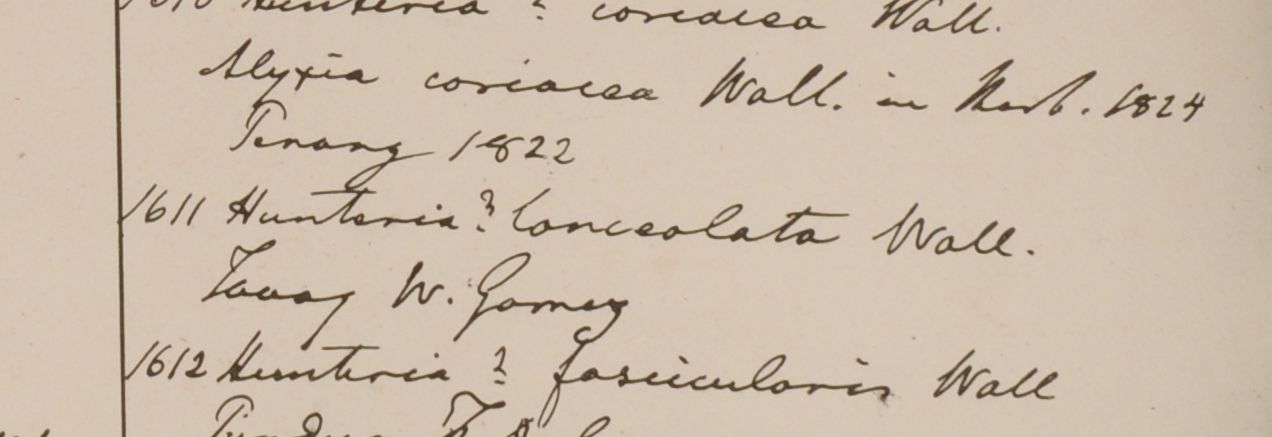 1610 Hunteria ? coriacea Wall.
Alyxia coriacea Wall. in Herb. 1824
Penang 1822
1611 Hunteria ? lanceolata Wall.
Tavoy W. Gomez
1612 Hunteria ? fascicularis Wall